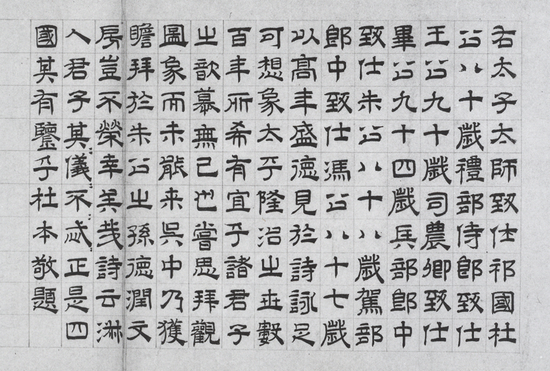 右太子太師致仕祁國杜
公八十歲禮部侍郎致仕
王公九十歲司農卿致仕
畢公九十四歲兵部郎中
致仕朱公八十八歲駕部
郎中致仕馮公八十七歲
以高年盛德見於詩詠足
可想象太平隆治之世數
百年所希有宜乎諸君子
之歆慕無已也嘗思拜觀
圖象而未能來吳中乃獲
瞻拜於朱公之孫德潤文
房豈不榮幸矣哉詩云淑
人君子其儀不忒正是四
國其有鑒乎杜本敬題